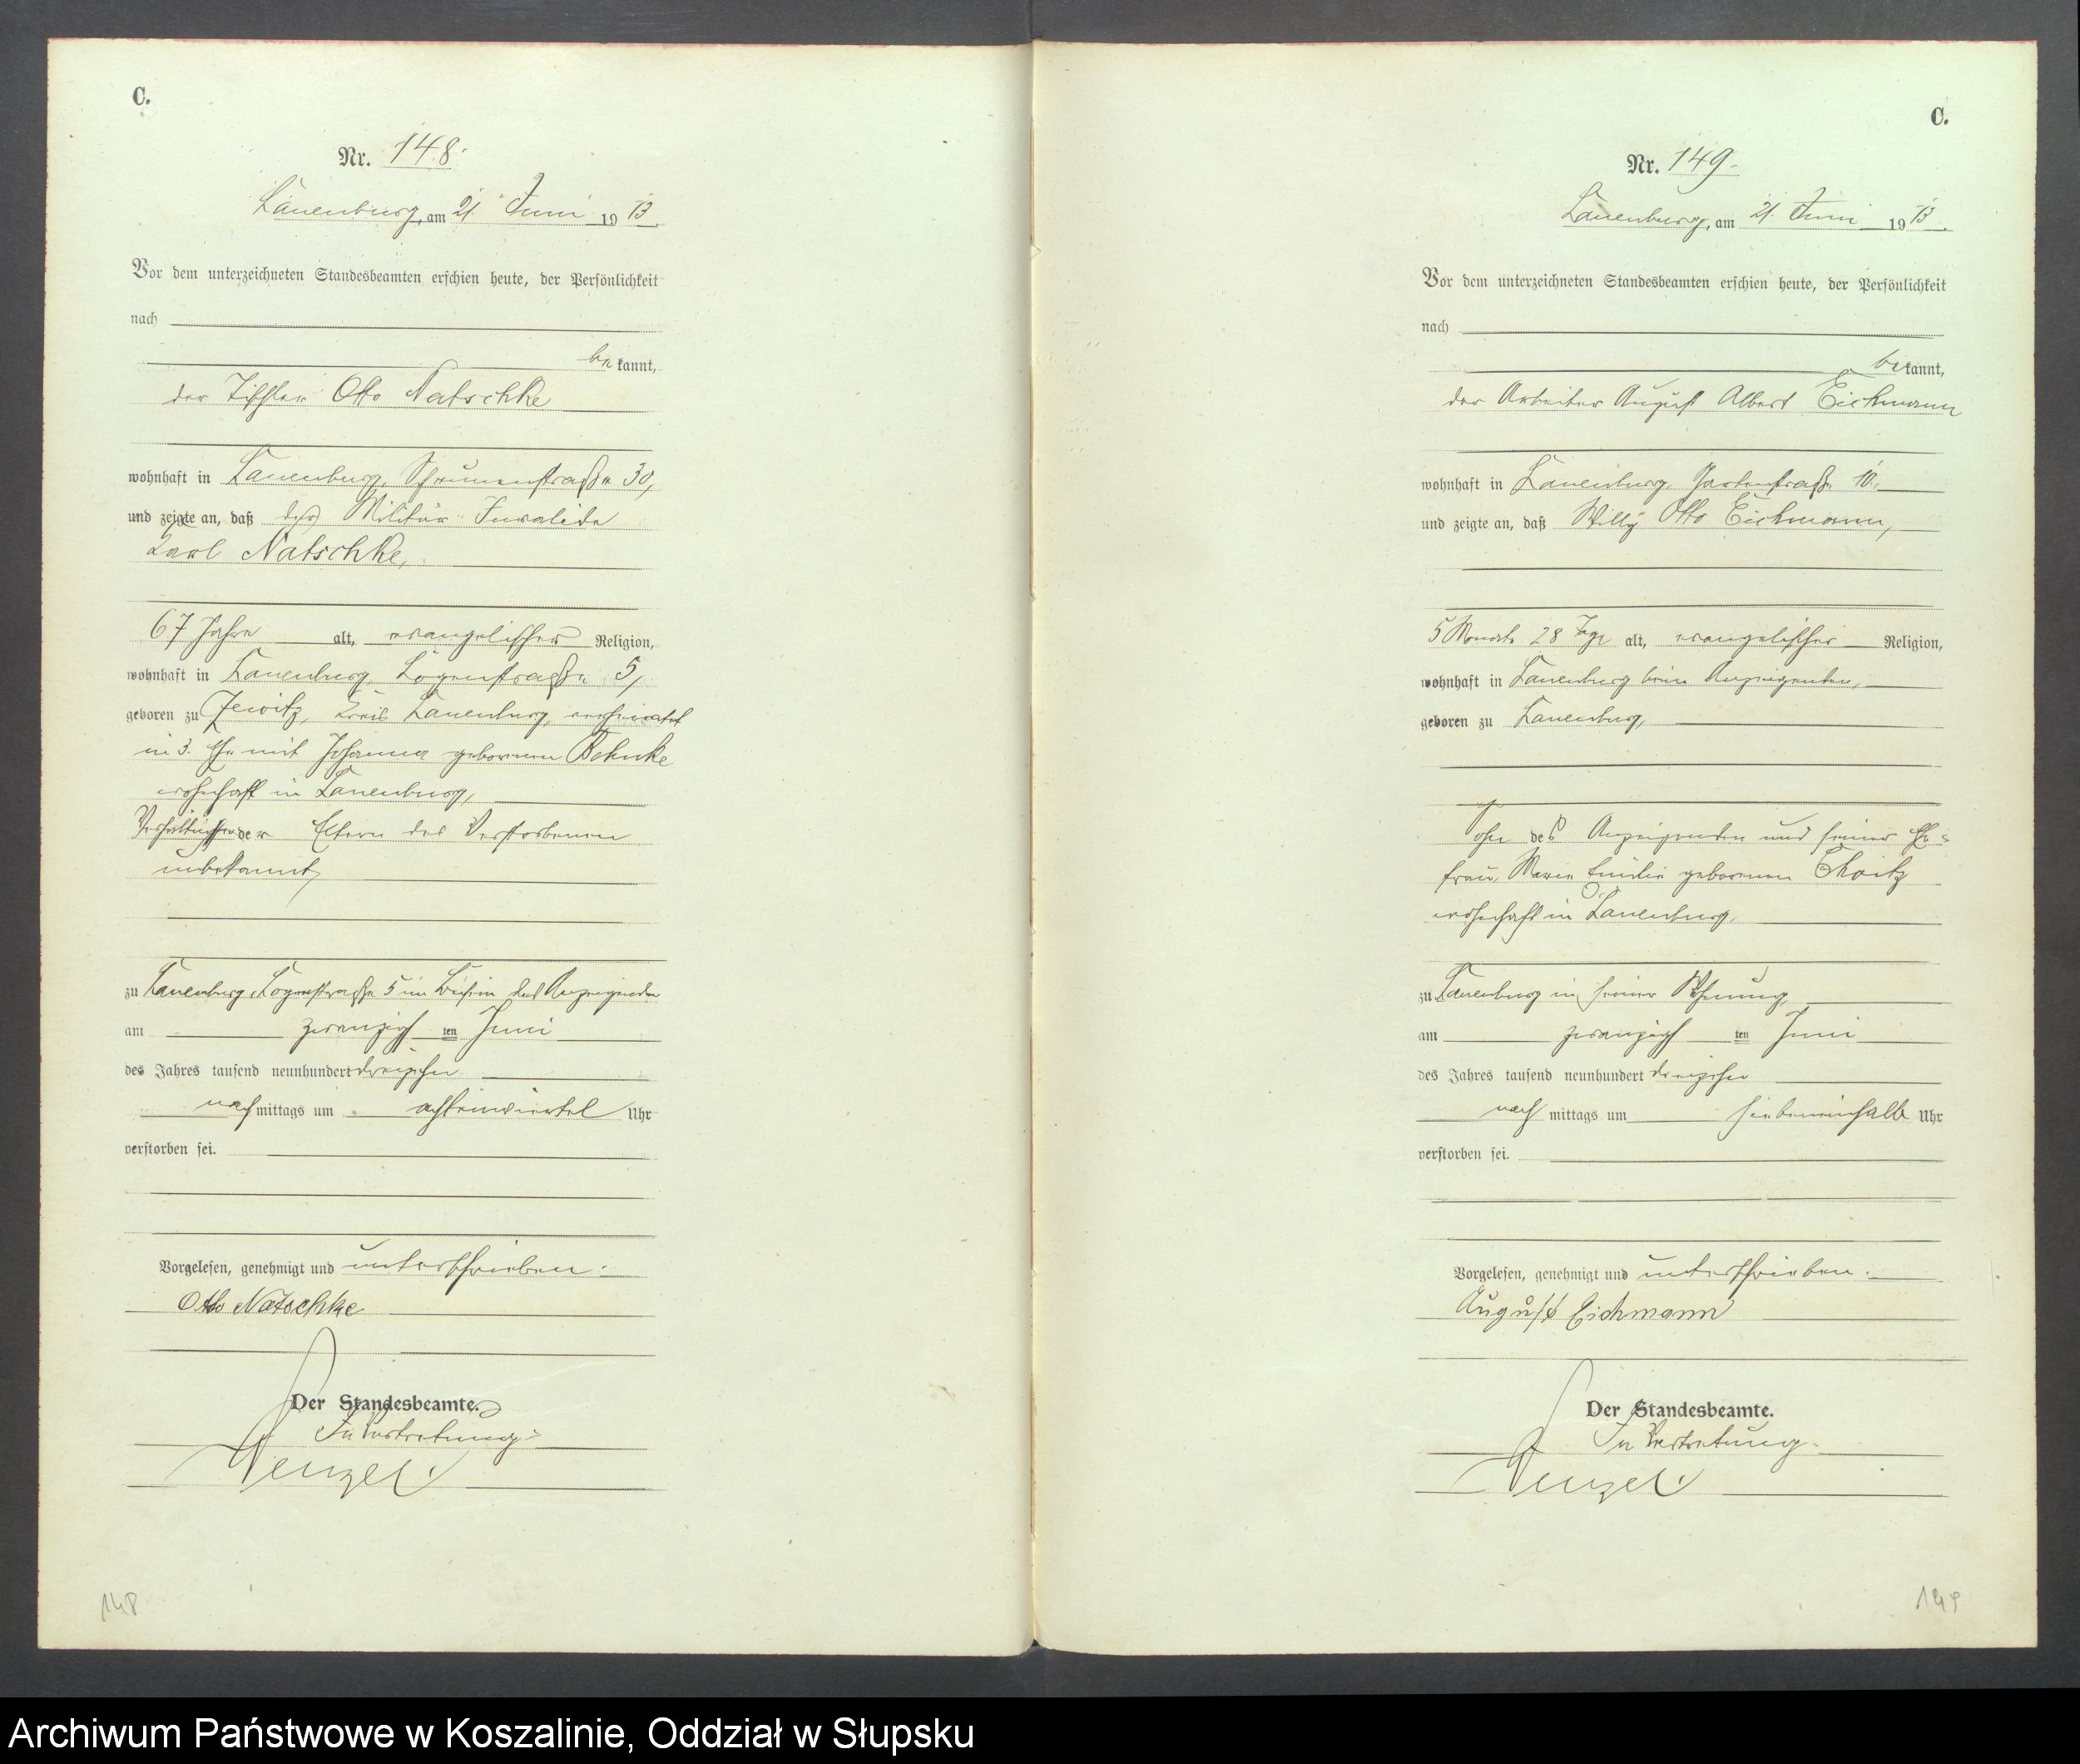 C.
Nr. 148.
Lauenburg, am 21. Juni 1913.
Vor dem unterzeichneten Standesbeamten erschien heute, der Persönlichkeit
nach
bekannt,
der Tischler Otto Natschke
wohnhaft in Lauenburg, Scheunenstraße 30,
und zeigte an, daß der Militär-Invalide
Karl Natschke,
67 Jahre alt, evangelischer Religion,
wohnhaft in Lauenburg, Logenstraße 5,
geboren zu Jewitz, Kreis Lauenburg, verheiratet
in 3. Ehe mit Johanna geborenen Behnke
wohnhaft in Lauenburg,
der Eltern des Verstorbenen
unbekannt,
zu Lauenburg, Logenstraße 5 im Beisein des Anzeigenden
am zwanzigsten Juni
des Jahres tausend neunhundert dreizehn
nachmittags um achteinviertel Uhr
verstorben sei.
Vorgelesen, genehmigt und unterschrieben.
Otto Natschke
Der Standesbeamte.
In Vertretung.
Wenzel.
148
C.
Nr. 149.
Lauenburg, am 21. Juni 1913.
Vor dem unterzeichneten Standesbeamten erschien heute, der Persönlichkeit
nach
bekannt,
der Arbeiter August Albert Eichmann
wohnhaft in Lauenburg, Gartenstraße 10,
und zeigte an, daß Willy Otto Eichmann,
5 Monate 28 Tage alt, evangelischer Religion,
wohnhaft in Lauenburg beim Anzeigenden,
geboren zu Lauenburg,
Sohn des Anzeigenden und seiner Ehe-
frau, Marie Emilie geborenen
wohnhaft in Lauenburg,
zu Lauenburg in seiner Wohnung
am zwanzigsten Juni
des Jahres tausend neunhundert dreizehn
nachmittags um siebeneinhalb Uhr
verstorben sei.
Vorgelesen, genehmigt und unterschrieben.
August Eichmann
Der Standesbeamte.
In Vertretung.
Wenzel.
149
Archiwum Państwowe w Koszalinie, Oddział w Słupsku